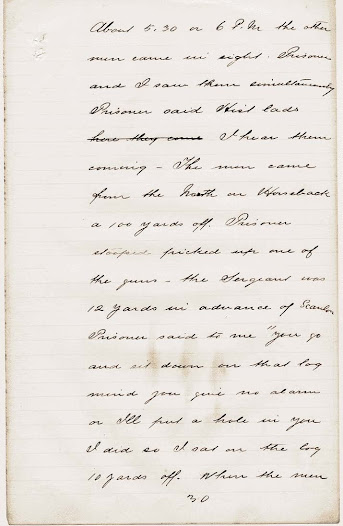 About 5.30 or 6 P.M the other
men came in sight. Prisoner
and I saw them simultaneously
Prisoner said Hist lads
here they come I hear them
coming - The men came
from the North on Horseback
a 100 yards off. Prisoner
stooped picked up one of
the guns - the Sergeant was
12 yards in advance of Scanlon
Prisoner said to me "you go
and sit down on that log
mind you give no alarm
or Ill put a hole in you
I did so I sat on the log
10 yards off. When the men
30